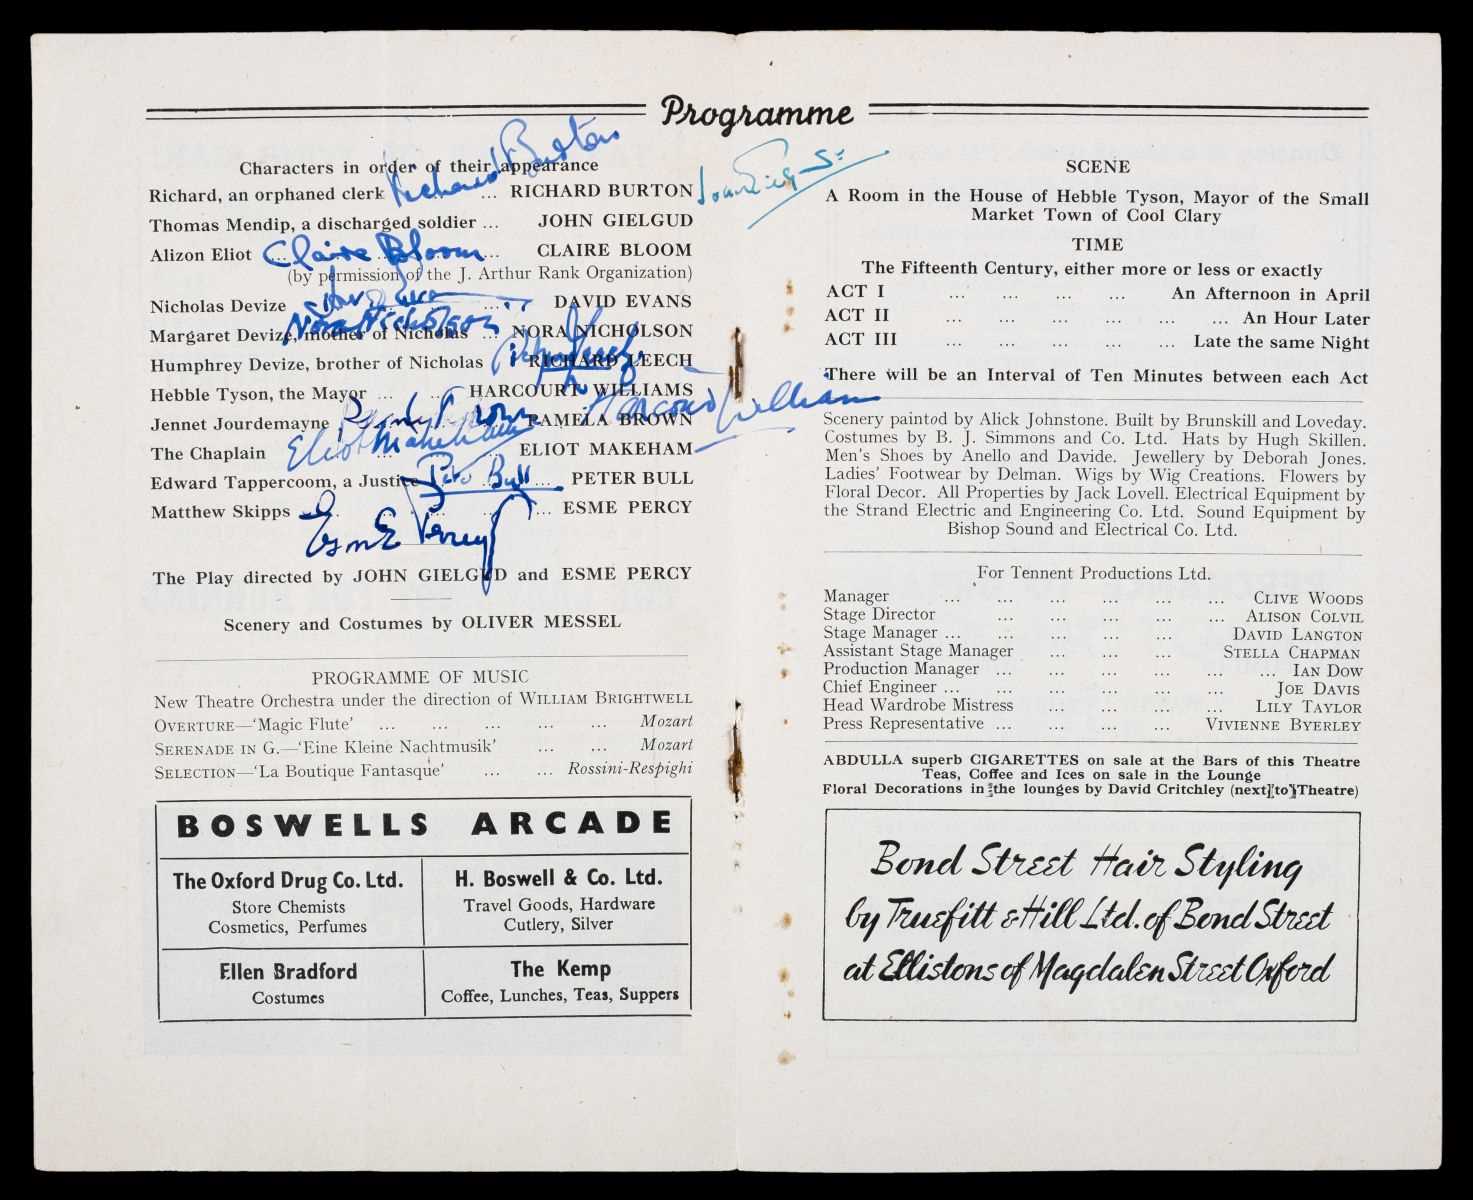 Programme
Characters in order of their appearance
Richard Burton
Richard, an orphaned clerk ... RICHARD BURTON
Thomas Mendip, a discharged soldier ... JOHN GIELGUD
Alizon Eliot ... CLAIRE BLOOM
Claire Bloom
(by permission of the J. Arthur Rank Organization)
Nicholas Devize ... DAVID EVANS
Nora Nicholson
Margaret Devize, mother of Nicholas ... NORA NICHOLSON
Humphrey Devize, brother of Nicholas RICHARD LEECH
Hebble Tyson, the Mayor ... ... HARCOURT WILLIAMS
Harcourt Williams
Jennet Jourdemayne PAMELA BROWN
Eliot Makeham
The Chaplain ... ELIOT MAKEHAM
Edward Tappercoom, a Justice ... PETER BULL
Peter Bull
Matthew Skipps ... ESME PERCY
Esme Percy
The Play directed by JOHN GIELGUD and ESME PERCY
Scenery and Costumes by OLIVER MESSEL
PROGRAMME OF MUSIC
New Theatre Orchestra under the direction of WILLIAM BRIGHTWELL
OVERTURE—‘Magic Flute’ ... ... ... ... ... Mozart
SERENADE IN G.—‘Eine Kleine Nachtmusik’ ... ... Mozart
SELECTION—‘La Boutique Fantasque’ ... ... Rossini-Respighi
BOSWELLS ARCADE
The Oxford Drug Co. Ltd.
Store Chemists
Cosmetics, Perfumes
H. Boswell & Co. Ltd.
Travel Goods, Hardware
Cutlery, Silver
Ellen Bradford
Costumes
The Kemp
Coffee, Lunches, Teas, Suppers
SCENE
A Room in the House of Hebble Tyson, Mayor of the Small
Market Town of Cool Clary
TIME
The Fifteenth Century, either more or less or exactly
ACT I ... ... ... ... An Afternoon in April
ACT II ... ... ... ... ... ... An Hour Later
ACT III ... ... ... ... ... Late the same Night
There will be an Interval of Ten Minutes between each Act
Scenery painted by Alick Johnstone. Built by Brunskill and Loveday.
Costumes by B. J. Simmons and Co. Ltd. Hats by Hugh Skillen.
Men's Shoes by Anello and Davide. Jewellery by Deborah Jones.
Ladies' Footwear by Delman. Wigs by Wig Creations. Flowers by
Floral Decor. All Properties by Jack Lovell. Electrical Equipment by
the Strand Electric and Engineering Co. Ltd. Sound Equipment by
Bishop Sound and Electrical Co. Ltd.
For Tennent Productions Ltd.
Manager ... ... ... ... ... ... CLIVE WOODS
Stage Director ... ... ... ... ... ALISON COLVIL
Stage Manager ... ... ... ... ... DAVID LANGTON
Assistant Stage Manager ... ... ... STELLA CHAPMAN
Production Manager ... ... ... ... ... ... IAN DOW
Chief Engineer ... ... ... ... ... ... JOE DAVIS
Head Wardrobe Mistress ... ... ... ... LILY TAYLOR
Press Representative ... ... ... ... VIVIENNE BYERLEY
ABDULLA superb CIGARETTES on sale at the Bars of this Theatre
Teas, Coffee and Ices on sale in the Lounge
Floral Decorations in the lounges by David Critchley (next to Theatre)
Bond Street Hair Styling
by Truefitt & Hill Ltd. of Bond Street
at Ellistons of Magdalen Street Oxford